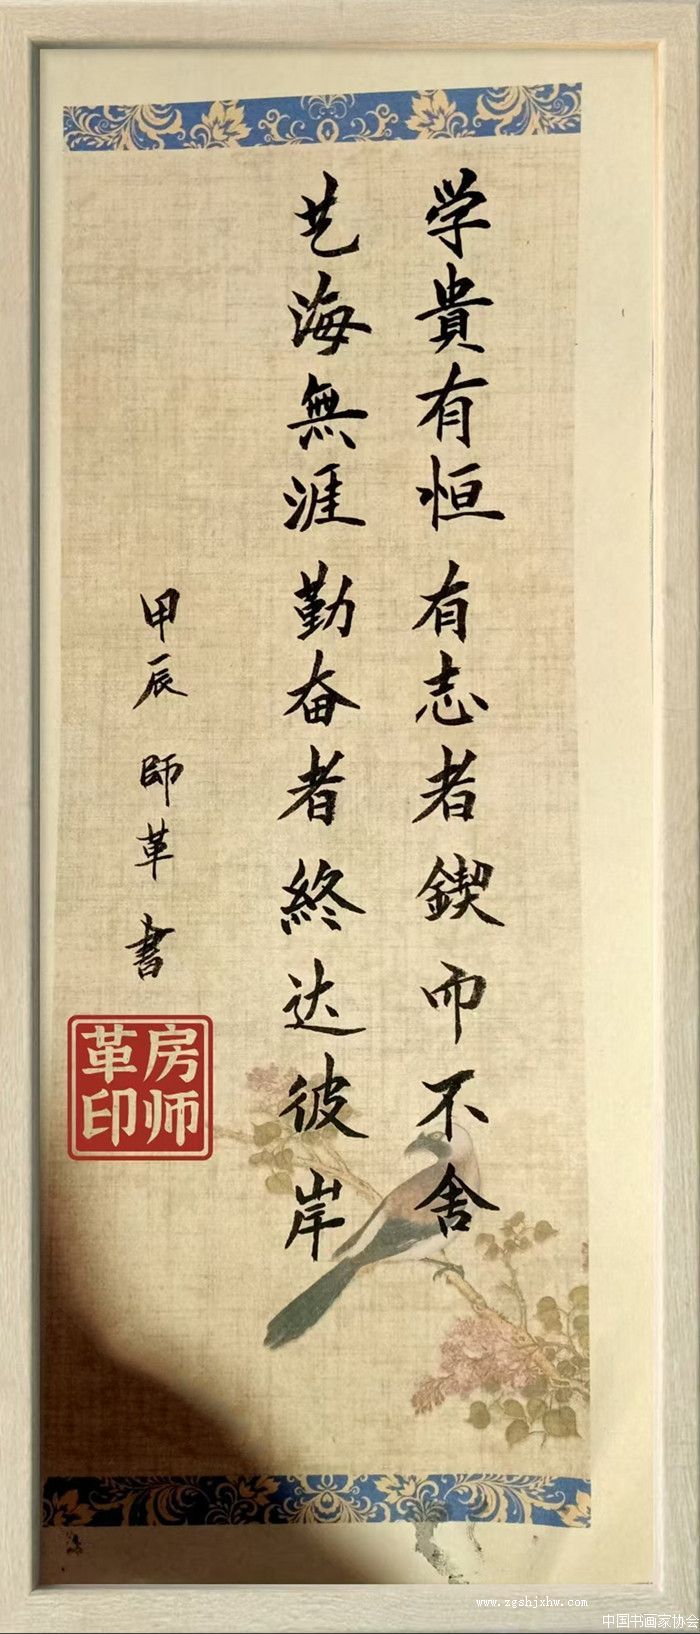 学貴有恒有志者鍥而不舍
艺海無涯勤奋者終达彼岸
甲辰 師革書
房师
革印
www.zgshjxhw.com
中国书画家协会